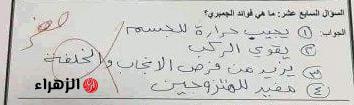 السؤال السابع عشر: ما هي فوائد الجمبري؟
الجواب: ① يجيب حرارة للجسم
② يقوي الركب
③ يزيد من فرص الانجاب والخلفة
④ مفيد للمتزوجين
الزهراء